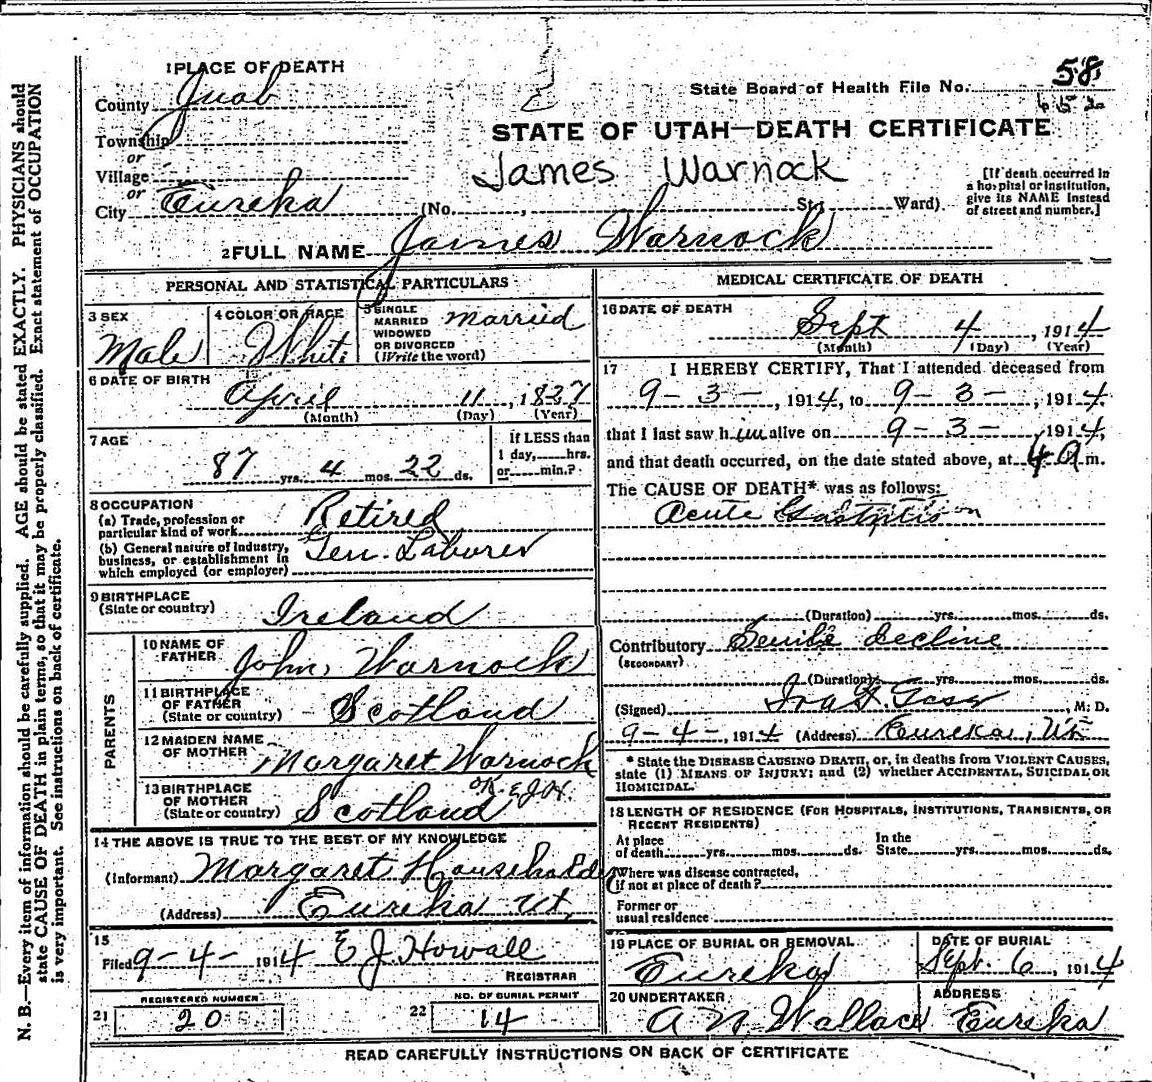 1 PLACE OF DEATH
County Juab
State Board of Health File No. 58
652
Township
or
Village
or
City Eureka
STATE OF UTAH—DEATH CERTIFICATE
James Warnock
(No. , St; Ward)
[If death occurred in
a hospital or institution,
give its NAME instead
of street and number.]
2 FULL NAME James Warnock
PERSONAL AND STATISTICAL PARTICULARS
3 SEX
Male
4 COLOR OR RACE
White
5 SINGLE
MARRIED
WIDOWED
OR DIVORCED
(Write the word)
Married
6 DATE OF BIRTH
April 11, 1827
(Month) (Day) (Year)
7 AGE
87 yrs. 4 mos. 22 ds.
If LESS than
1 day, hrs.
or min.?
8 OCCUPATION
(a) Trade, profession or
particular kind of work Retired
(b) General nature of Industry,
business, or establishment in
which employed (or employer)
Gen. Laborer
9 BIRTHPLACE
(State or country) Ireland
PARENTS
10 NAME OF
FATHER John Warnock
11 BIRTHPLACE
OF FATHER
(State or country) Scotland
12 MAIDEN NAME
OF MOTHER Margaret Warnock
OK. EJH.
13 BIRTHPLACE
OF MOTHER
(State or country) Scotland
14 THE ABOVE IS TRUE TO THE BEST OF MY KNOWLEDGE
(Informant) Margaret Householder
(Address) Eureka Ut.
15
Filed 9-4-1914 E J. Howall
REGISTRAR
REGISTERED NUMBER
21 20
NO. OF BURIAL PERMIT
22 14
MEDICAL CERTIFICATE OF DEATH
16 DATE OF DEATH
Sept 4, 1914
(Month) (Day) (Year)
17 I HEREBY CERTIFY, That I attended deceased from
9-3-, 1914, to 9-3-, 1914
that I last saw him alive on 9-3-, 1914,
and that death occurred, on the date stated above, at 4 a m.
The CAUSE OF DEATH* was as follows:
Acute Gastritis
(Duration) yrs. mos. ds.
Contributory Senile decline
(SECONDARY)
(Duration) yrs. mos. ds.
(Signed) , M. D.
9-4-, 1914 (Address) Eureka, Ut.
* State the DISEASE CAUSING DEATH, or, in deaths from VIOLENT CAUSES,
state (1) MEANS OF INJURY; and (2) whether ACCIDENTAL, SUICIDAL OR
HOMICIDAL.
18 LENGTH OF RESIDENCE (FOR HOSPITALS, INSTITUTIONS, TRANSIENTS, OR
RECENT RESIDENTS)
At place
of death yrs. mos. ds.
In the
State yrs. mos. ds.
Where was disease contracted,
if not at place of death?
Former or
usual residence
19 PLACE OF BURIAL OR REMOVAL
Eureka
DATE OF BURIAL
Sept. 6, 1914
20 UNDERTAKER
A N Wallace
ADDRESS
Eureka
READ CAREFULLY INSTRUCTIONS ON BACK OF CERTIFICATE
N. B.—Every item of information should be carefully supplied. AGE should be stated EXACTLY. PHYSICIANS should
state CAUSE OF DEATH in plain terms, so that it may be properly classified. Exact statement of OCCUPATION
is very important. See instructions on back of certificate.